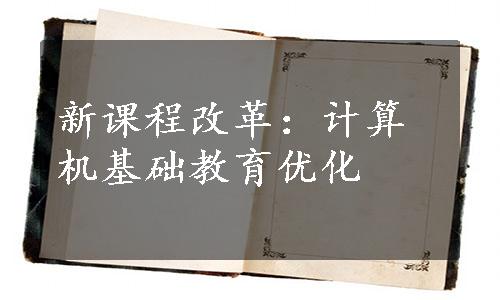 新课程改革：计算
机基础教育优化